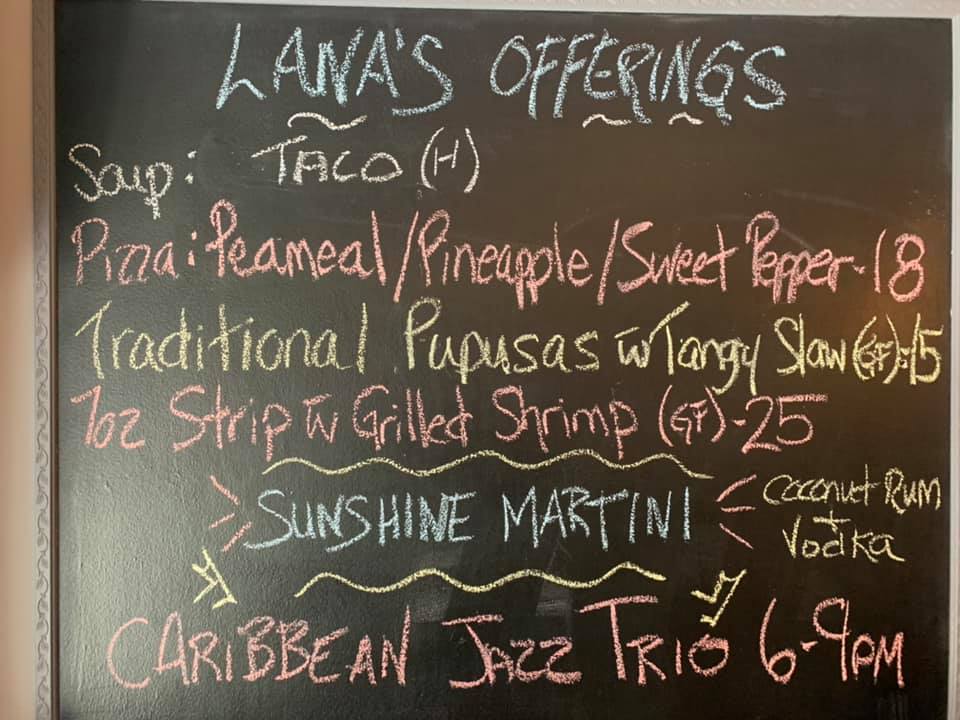 LANA'S OFFERINGS
Soup: TACO (H)
Pizza: Peameal/Pineapple/Sweet Pepper-18
Traditional Pupusas w Tangy Slaw (GF)-15
7oz Strip w Grilled Shrimp (GF)-25
SUNSHINE MARTINI
Coconut Rum
+
Vodka
CARIBBEAN JAZZ TRIO 6-9PM